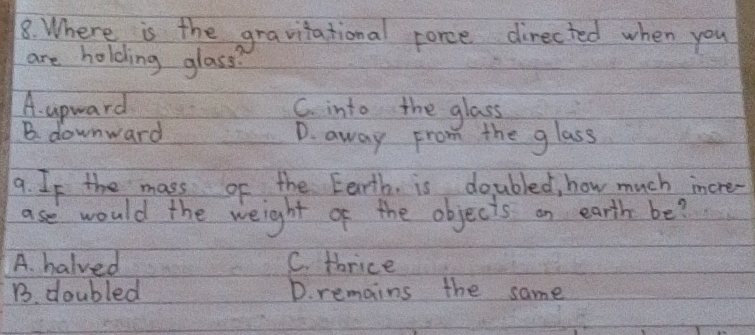 8. Where is the gravitational force directed when you
are holding glass?
A. upward C. into the glass
B. downward D. away from the glass
9. If the mass of the Earth. is doubled, how much incre-
ase would the weight of the objects on earth be?
A. halved C. thrice
B. doubled D. remains the same